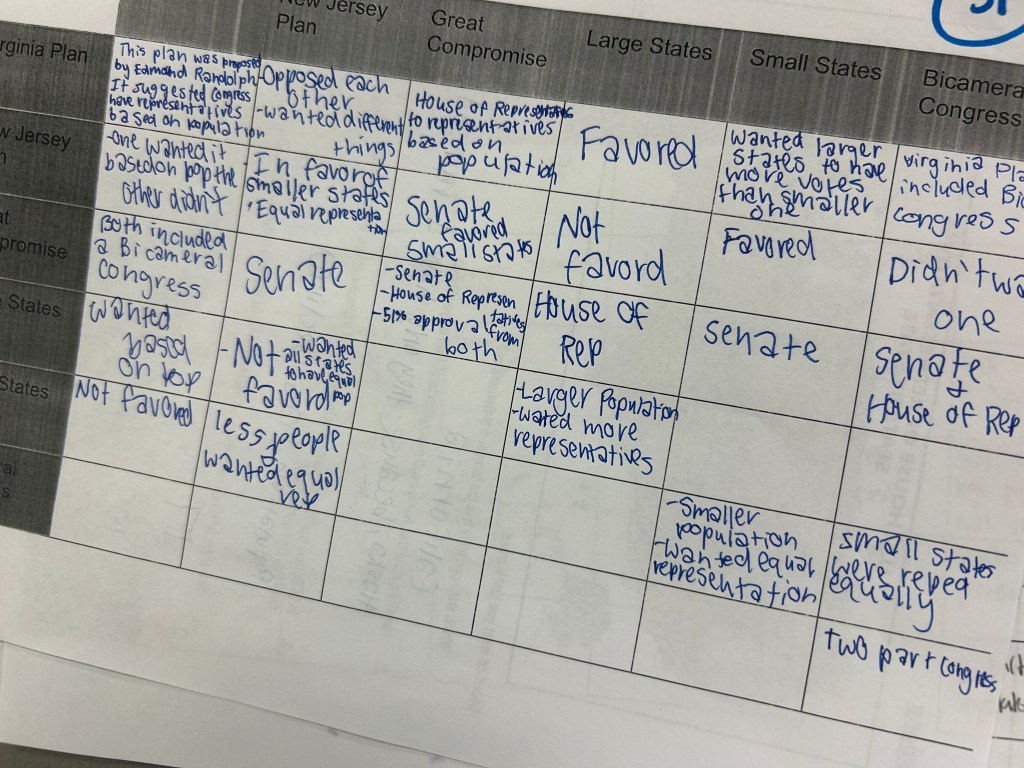 New Jersey
Plan
Great
Compromise
Large States
Small States
Bicamera
Congress
rginia Plan
This plan was proposed
by Edmond Randolph
It suggested congress
have representatives
based on population
-Opposed each
other
-wanted different
things
House of Representatives
to representatives
based on
population
Favored
wanted larger
states to have
more votes
than smaller
one
virginia Pla
included Bic
congress
w Jersey
-one wanted it
based on pop the
other didn't
In favor of
smaller states
Equal representa
tion
Senate
favored
small states
Not
favord
Favored
Didn't wa
one
at
promise
Both included
a Bicameral
congress
Senate
-Senate
-House of Represen
tatives
-51% approval from
both
House of
Rep
senate
Senate
&
House of Rep
e States
wanted
based
on pop
-Not
-wanted
all states
to have equal
pop
favord
-Larger Population
-wated more
representatives
States
Not favored
less people
wanted equal
rep
-Smaller
population
-Wanted equal
representation
small states
were reped
equally
two part congress